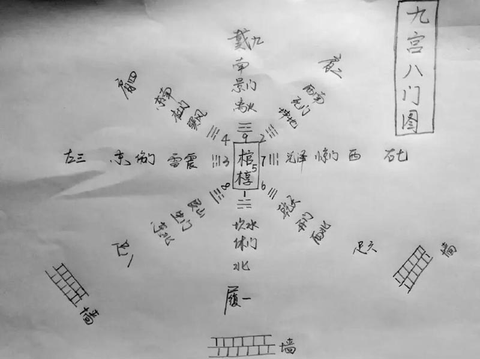 九宫八门图
戴九
南
景门
离火
肩二
西南
死门
坤地
肩四
东南
杜门
巽风
4 9 2
左三 东 伤门 雷震 3
棺
5
椁
7 兑泽 惊门 西 右七
8 1 6
艮山
生门
东北
坎水
休门
北
履一
乾天
开门
西北
足六
墙
墙
墙